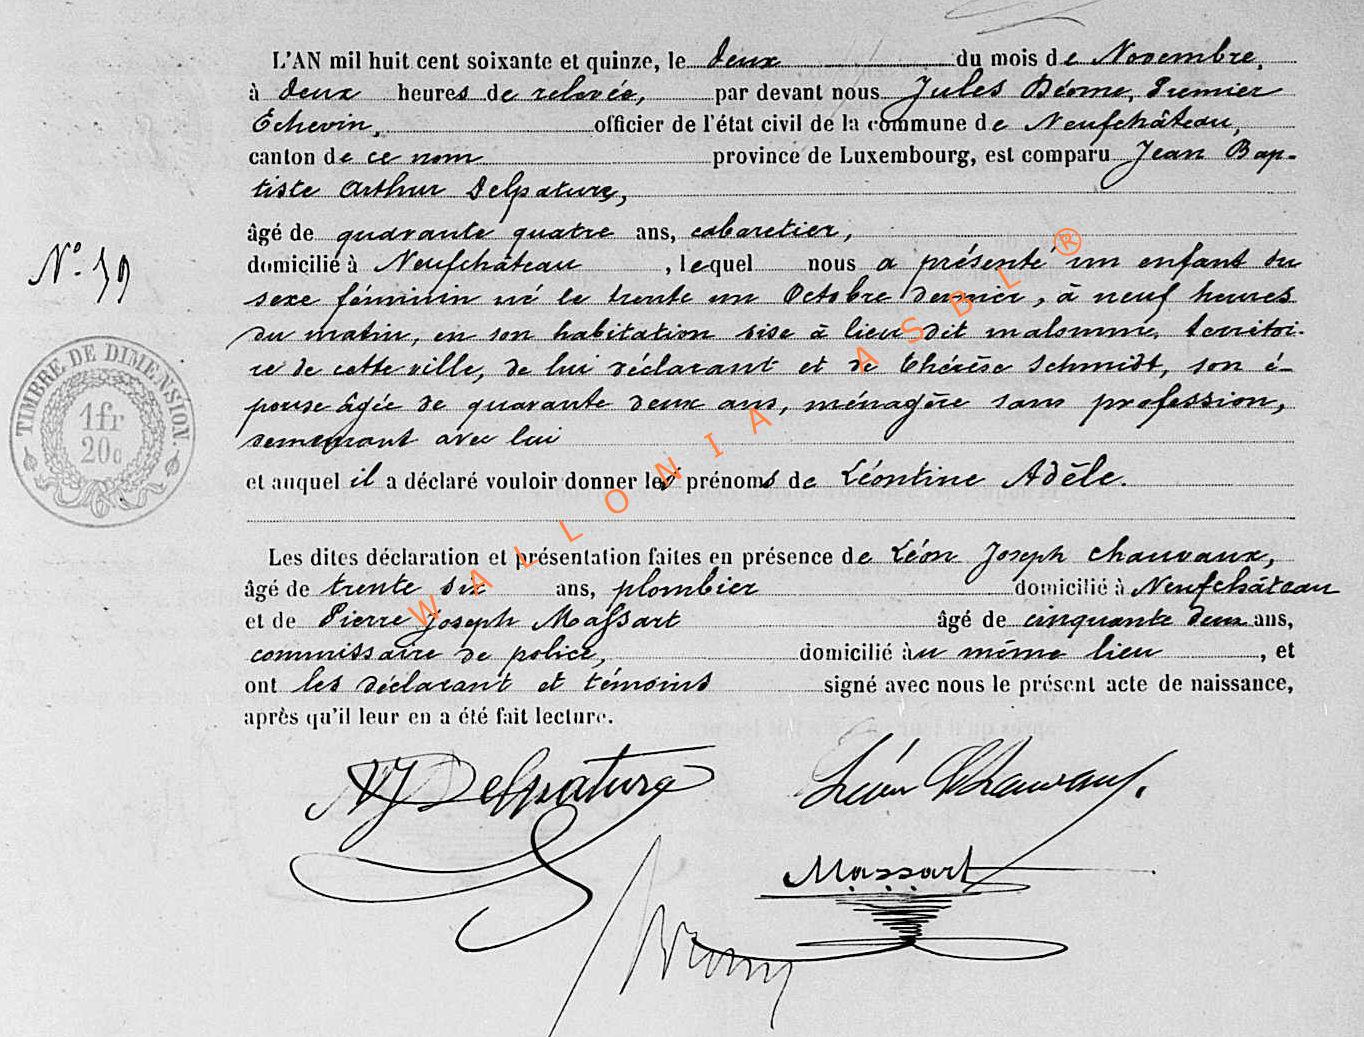 L'AN mil huit cent soixante et quinze, le deux du mois de Novembre,
à deux heures de relevée, par devant nous Jules Déome, Premier
Echevin, officier de l'état civil de la commune de Neufchâteau,
canton de ce nom province de Luxembourg, est comparu Jean Bap-
tiste Arthur Delpature,
âgé de quarante quatre ans, cabaretier,
domicilié à Neufchâteau, lequel nous a présenté un enfant du
N° 59
sexe féminin né le trente un Octobre dernier, à neuf heures
du matin, en son habitation sise à lieu dit malome, territoi-
re de cette ville, de lui déclarant et de Thérèse Schmidt, son é-
pouse âgée de quarante deux ans, ménagère sans profession,
demeurant avec lui
TIMBRE DE DIMENSION.
1fr
20c
et auquel il a déclaré vouloir donner les prénoms de Léontine Adèle.
Les dites déclaration et présentation faites en présence de Léon Joseph Chauvaux,
âgé de trente six ans, plombier domicilié à Neufchâteau
et de Pierre Joseph Massart âgé de cinquante deux ans,
commissaire de police, domicilié au même lieu, et
ont les déclarant et témoins signé avec nous le présent acte de naissance,
après qu'il leur en a été fait lecture.
AJ Delpature
Léon Chauvaux.
Massart
WALLONIA ASBL ®